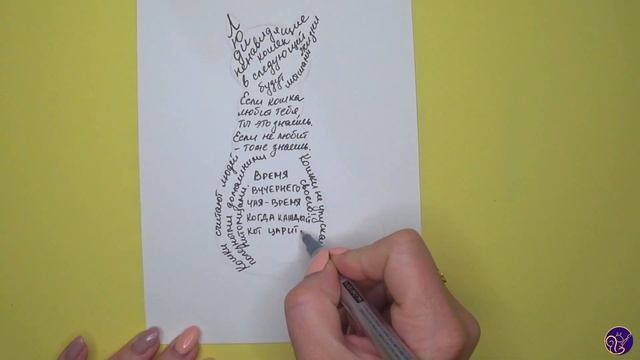 Люди
ненавидящие
кошек
в следующей
жизни
будут
мышами
Если кошка
любит тебя,
ты это знаешь.
Если не любит
- тоже знаешь.
Кошки считают людей
полезными домашними
питомцами
Время
вечернего
чая - время
когда каждый
кот царит
Кошки не
своего